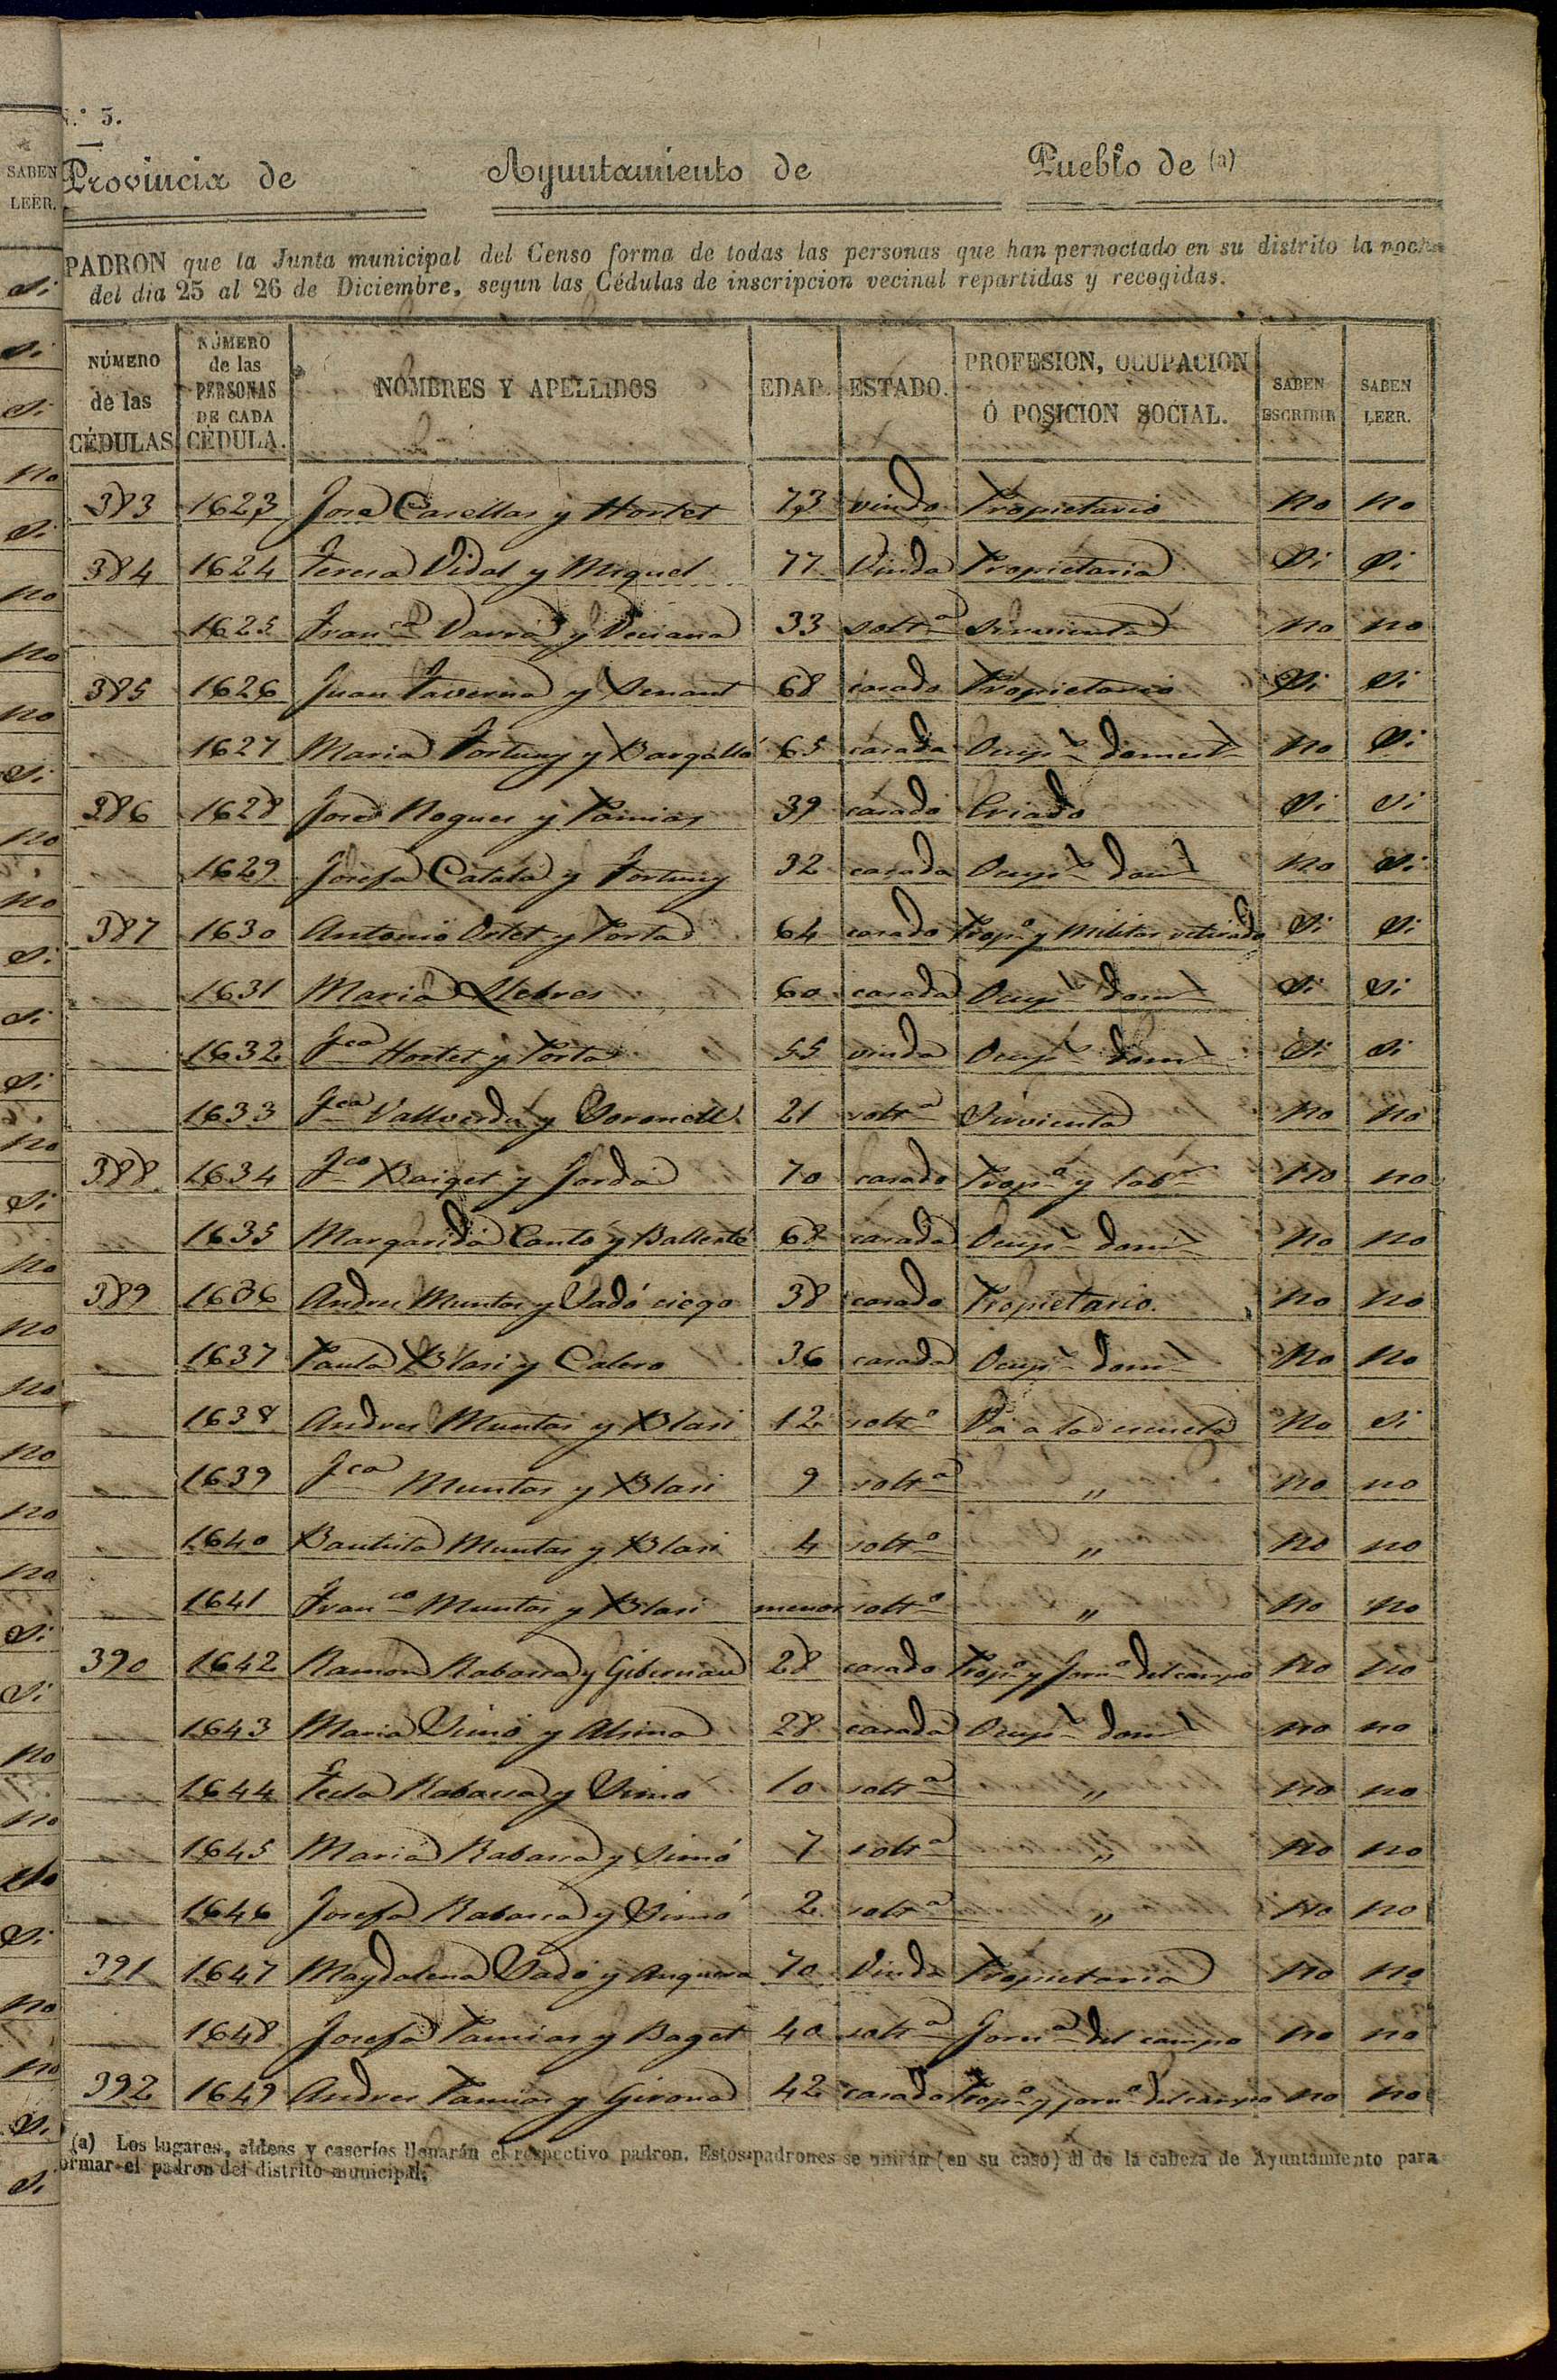 N.º 3.
Provincia de Ayuntamiento de Pueblo de (a)
PADRON que la Junta municipal del Censo forma de todas las personas que han pernoctado en su distrito la noche
del dia 25 al 26 de Diciembre, segun las Cédulas de inscripcion vecinal repartidas y recogidas.
NÚMERO de las CÉDULAS. NÚMERO de las PERSONAS DE CADA CÉDULA. NOMBRES Y APELLIDOS EDAD. ESTADO. PROFESION, OCUPACION Ó POSICION SOCIAL. SABEN ESCRIBIR SABEN LEER.
383 1623 Jose Casellas y Hortet 73 viudo Propietario No no
384 1624 Teresa Vidal y Miquel 77 Viuda Propietaria Si Si
1625 Franca y Veciana 33 solta Sirvienta No no
385 1626 Juan Taverna y Senant 68 casado Propietario Si Si
1627 Maria Fortuny y Bargalló 65 casada Ocups domest No Si
386 1628 José Nogues y Pamias 39 casado Criado Si Si
1629 Josefa Catalá y Fortuny 32 casada Ocups domt No Si
387 1630 Antonio Ortet y Porta 64 casado Propo y Militar retirado Si Si
1631 Maria Llebres 60 casada Ocups domt Si Si
1632 Fca Hortet y Porta 55 viuda Ocups domt Si Si
1633 Fca Vallverdu y Voronell 21 solta Sirvienta No no
388 1634 Fco Baiget y Jordá 70 casado Propo y labr No no
1635 Margarida Cantó y Ballesté 68 casada Ocups domt No no
389 1636 Andres Muntas y Sadó ciego 38 casado Propietario. No no
1637 Paula Blasi y Calero 36 casada Ocups domt No No
1638 Andres Muntas y Blasi 12 solto Vá a la escuela No Si
1639 Fca Muntas y Blasi 9 solta " No no
1640 Bautista Muntas y Blasi 4 solto " No no
1641 Franco Muntas y Blasi menor solto " No no
390 1642 Ramon Rabassa y Gibernau 28 casado Propo y Jorno del campo No no
1643 Maria Simó y Alsina 28 casada Ocups domt no no
1644 Tecla Rabassa y Simo 10 solta " no no
1645 Maria Rabassa y Simó 7 solta " No no
1646 Josefa Rabassa y Simó 2 solta " No no
391 1647 Magdalena Sadó y Anguera 70 Viuda Propietaria No no
1648 Josefa Pamias y Baget 40 solta Jorna del campo No no
392 1649 Andres Pamias y Girona 42 casado Propo y jorno del campo no no
(a) Los lugares, aldeas y caseríos llenarán el respectivo padron. Estos padrones se unirán (en su caso) al de la cabeza de Ayuntamiento para
ormar el padron del distrito municipal.
SABEN
LEER.
Si
Si
Si
no
Si
no
no
no
Si
no
no
Si
Si
Si
no
Si
no
no
no
no
no
no
Si
Si
no
no
no
Si
no
no
Si
Si